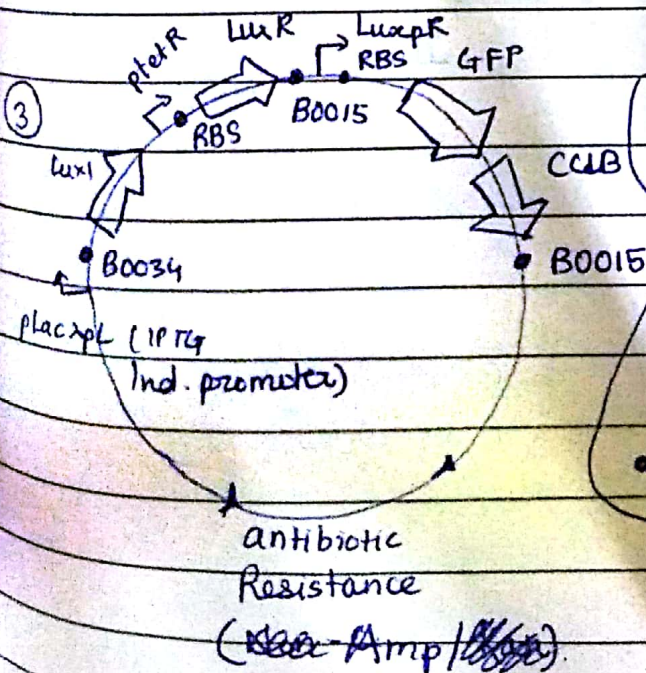 ③
ptetR
LuxR
LuxpR
RBS
GFP
B0015
RBS
Lux1
CCdB
B0034
B0015
pLacλpL (IPTG
Ind. promoter)
antibiotic
Resistance
(Amp/